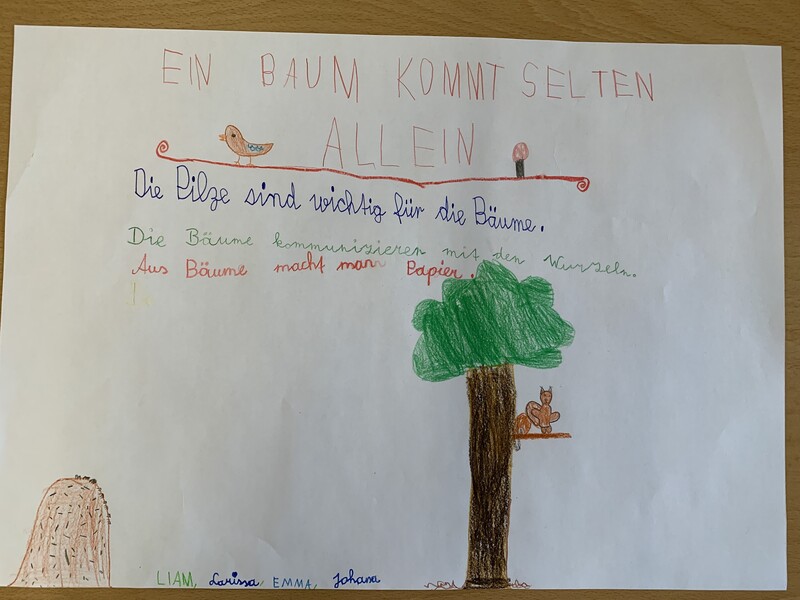 EIN BAUM KOMMT SELTEN
ALLEIN
Die Pilze sind wichtig für die Bäume.
Die Bäume kommunizieren mit den Wurzeln.
Aus Bäume macht mann Papier.
LIAM, Larissa, EMMA, Johana